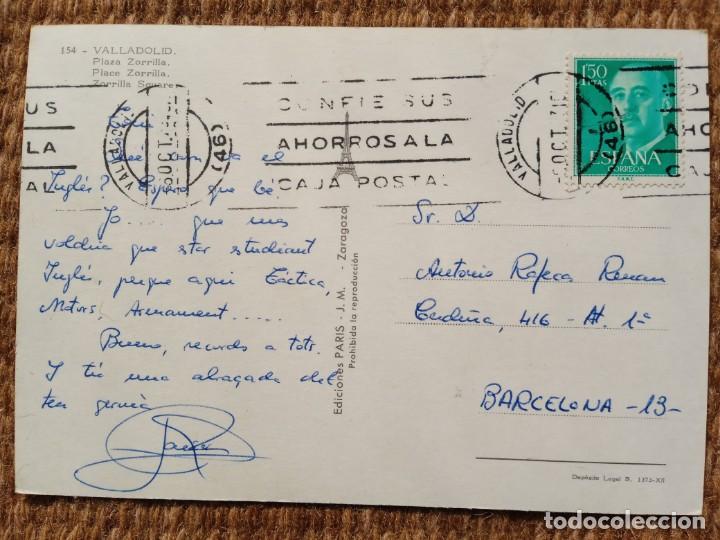 154 - VALLADOLID.
Plaza Zorrilla.
Place Zorrilla.
Zorrilla Square
US
LA
TAL
VALLADOLID
OCT.
(46)
CONFIE SUS
AHORROS A LA
CAJA POSTAL
VALLADOLID
OCT.
(46)
AHORR
CAJA
1'50
PTAS
ESPAÑA
CORREOS
F.N.M.T.
va el
Inglés? Espero que bé.
Jo que mes
voldria que star estudiant
Inglés, perque aqui Táctica,
Motors, Armament.....
Bueno, records a tots.
I tú una abraçada del
teu germà
Ediciones PARIS - J. M. - Zaragoza
Prohibida la reproducción
Sr. D.
Antonio Rafeca
Cerdeña, 416 - At. 1ª
BARCELONA -13-
Depósito Legal B. 1373-XII
todocoleccion
todocoleccion.net